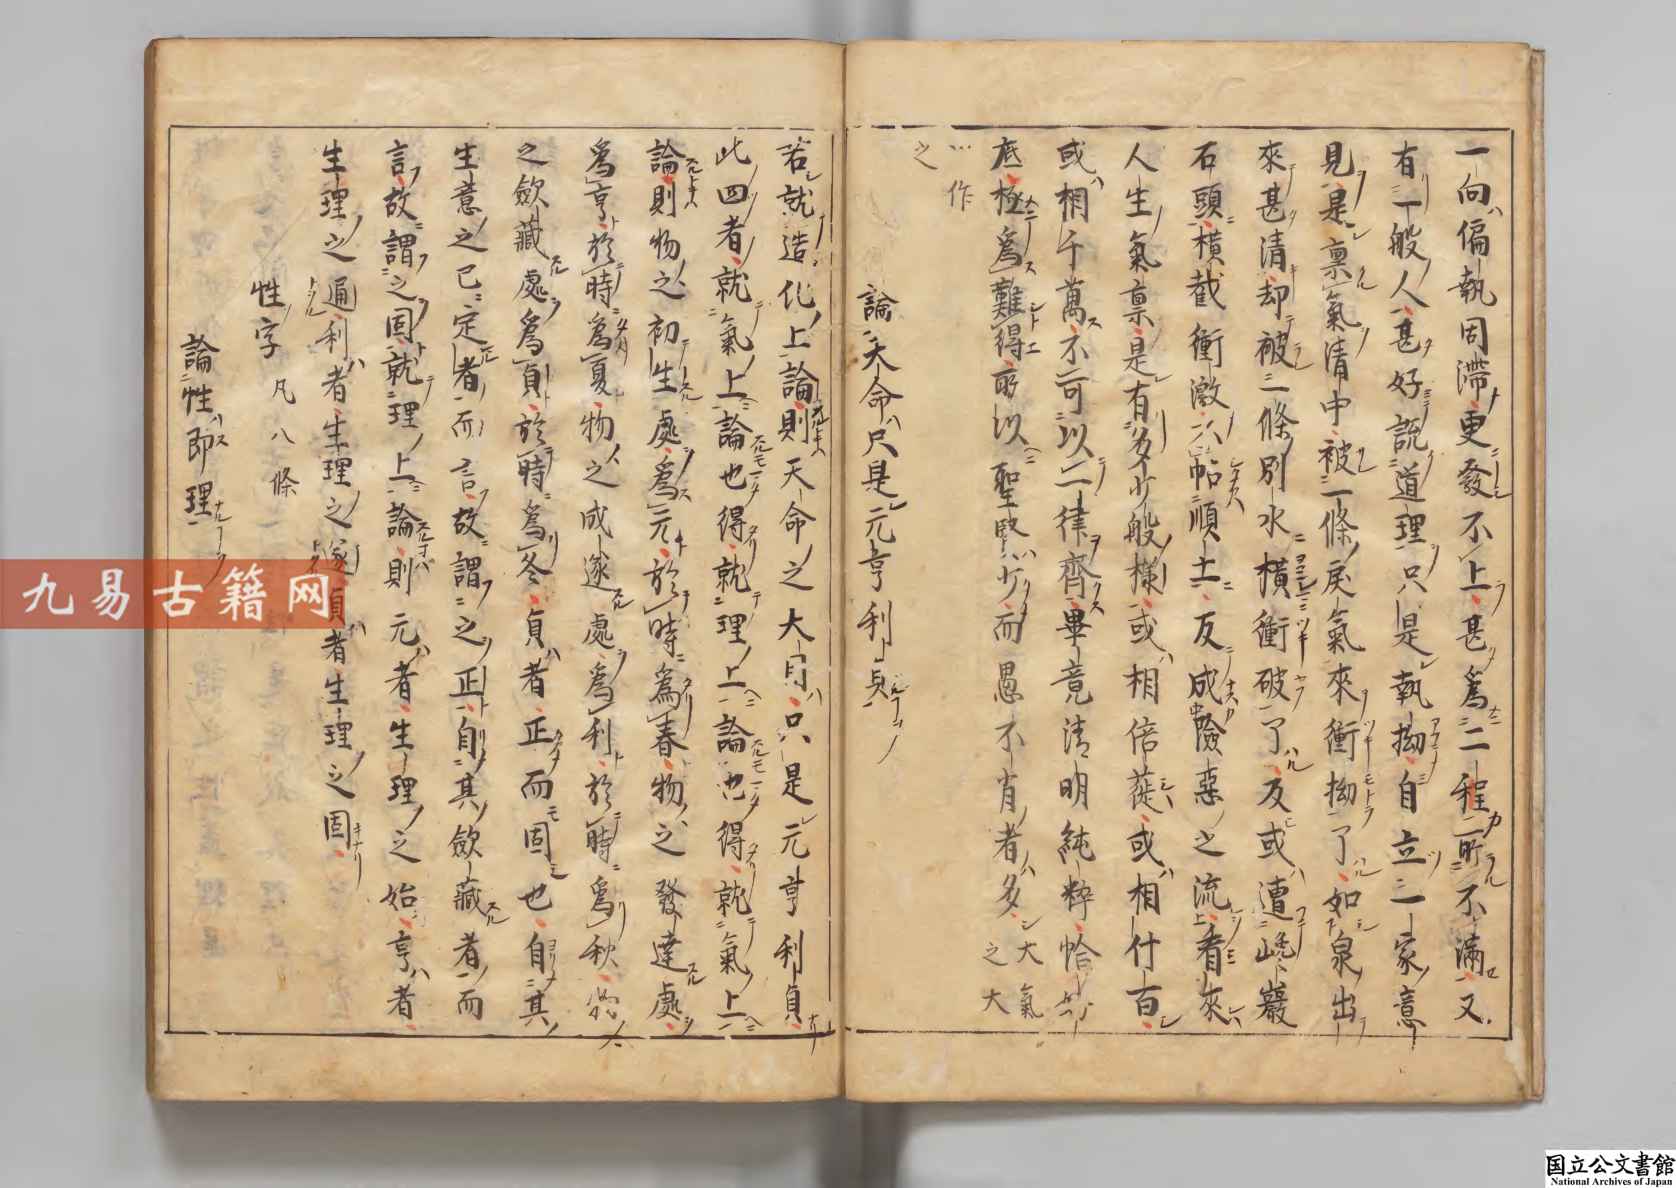 一向偏執固滯更發不上甚為二程所不滿又
有一般人甚好說道理只是執拗自立一家意
見是禀氣清中被一條戾氣來衝拗了如泉出
來甚清却被一條別水橫衝破了及或遭巉巖
石頭橫截衝激不帖順去反成險惡之流看來
人生氣禀是有多少般樣或相倍蓰或相什百
或相千萬不可以一律齊畢竟清明純粹恰好
底極為難得所以聖賢少而愚不肖者多 大氣
之大
作
之
論天命只是元亨利貞
若就造化上論則天命之大目只是元亨利貞
此四者就氣上論也得就理上論也得就氣上
論則物之初生處為元於時為春物之發達處
為亨於時為夏物之成遂處為利於時為秋物
之歛藏處為貞於時為冬貞者正而固也自其
生意之已定者而言故謂之正自其歛藏者而
言故謂之固就理上論則元者生理之始亨者
生理之通利者生理之遂貞者生理之固
性字 凡八條
論性即理
九易古籍网
国立公文書館
National Archives of Japan